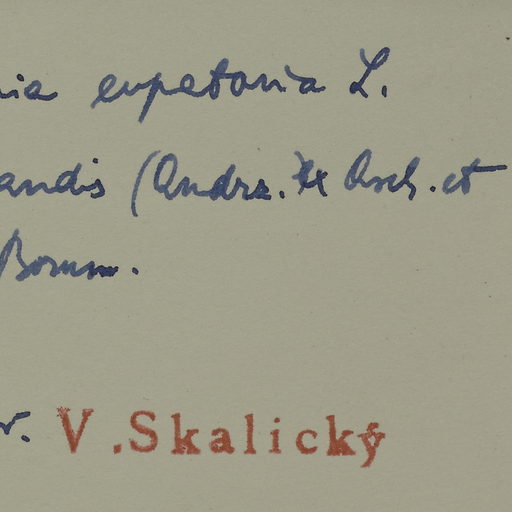 nia eupatoria L.
andis (Andrz. ex Asch. et
Bornm.
r. V. Skalický